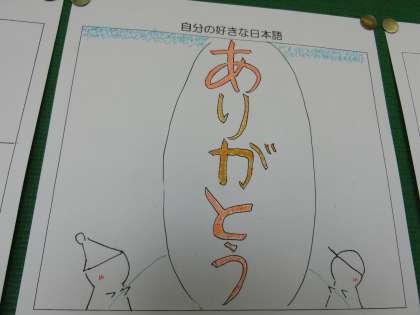 自分の好きな日本語
ありがとう